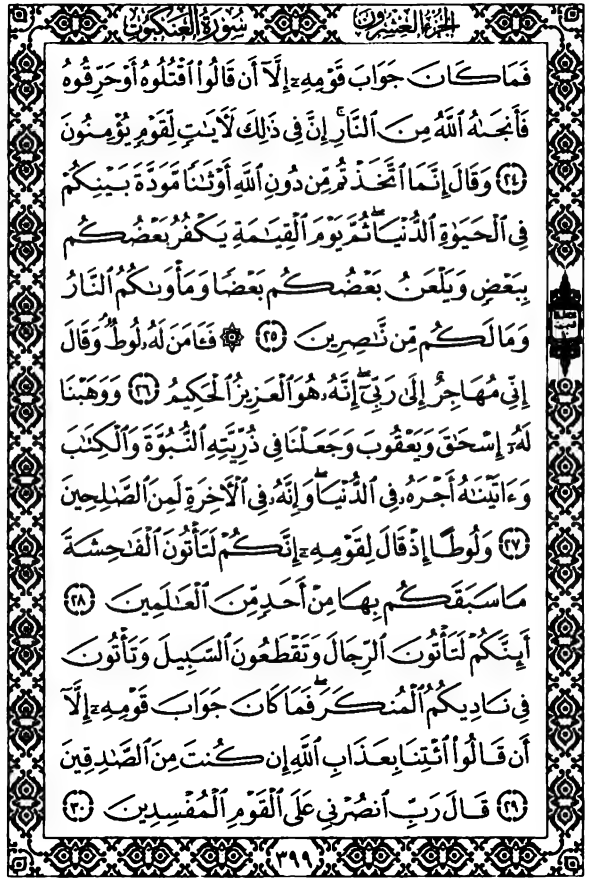 سُورَةُ العَنكَبُوت الجُزءُ العِشرُون
فَمَا كَانَ جَوَابَ قَوْمِهِۦٓ إِلَّآ أَن قَالُوا۟ ٱقْتُلُوهُ أَوْ حَرِّقُوهُ
فَأَنجَىٰهُ ٱللَّهُ مِنَ ٱلنَّارِ ۚ إِنَّ فِى ذَٰلِكَ لَـَٔايَـٰتٍ لِّقَوْمٍ يُؤْمِنُونَ
﴿٢٤﴾ وَقَالَ إِنَّمَا ٱتَّخَذْتُم مِّن دُونِ ٱللَّهِ أَوْثَـٰنًا مَّوَدَّةَ بَيْنِكُمْ
فِى ٱلْحَيَوٰةِ ٱلدُّنْيَا ۖ ثُمَّ يَوْمَ ٱلْقِيَـٰمَةِ يَكْفُرُ بَعْضُكُم
بِبَعْضٍ وَيَلْعَنُ بَعْضُكُم بَعْضًا وَمَأْوَىٰكُمُ ٱلنَّارُ
وَمَا لَكُم مِّن نَّـٰصِرِينَ ﴿٢٥﴾ ۞ فَـَٔامَنَ لَهُۥ لُوطٌ ۘ وَقَالَ
إِنِّى مُهَاجِرٌ إِلَىٰ رَبِّىٓ ۖ إِنَّهُۥ هُوَ ٱلْعَزِيزُ ٱلْحَكِيمُ ﴿٢٦﴾ وَوَهَبْنَا
لَهُۥٓ إِسْحَـٰقَ وَيَعْقُوبَ وَجَعَلْنَا فِى ذُرِّيَّتِهِ ٱلنُّبُوَّةَ وَٱلْكِتَـٰبَ
وَءَاتَيْنَـٰهُ أَجْرَهُۥ فِى ٱلدُّنْيَا ۖ وَإِنَّهُۥ فِى ٱلْـَٔاخِرَةِ لَمِنَ ٱلصَّـٰلِحِينَ
﴿٢٧﴾ وَلُوطًا إِذْ قَالَ لِقَوْمِهِۦٓ إِنَّكُمْ لَتَأْتُونَ ٱلْفَـٰحِشَةَ
مَا سَبَقَكُم بِهَا مِنْ أَحَدٍ مِّنَ ٱلْعَـٰلَمِينَ ﴿٢٨﴾
أَئِنَّكُمْ لَتَأْتُونَ ٱلرِّجَالَ وَتَقْطَعُونَ ٱلسَّبِيلَ وَتَأْتُونَ
فِى نَادِيكُمُ ٱلْمُنكَرَ ۖ فَمَا كَانَ جَوَابَ قَوْمِهِۦٓ إِلَّآ
أَن قَالُوا۟ ٱئْتِنَا بِعَذَابِ ٱللَّهِ إِن كُنتَ مِنَ ٱلصَّـٰدِقِينَ
﴿٢٩﴾ قَالَ رَبِّ ٱنصُرْنِى عَلَى ٱلْقَوْمِ ٱلْمُفْسِدِينَ ﴿٣٠﴾
٣٩٩